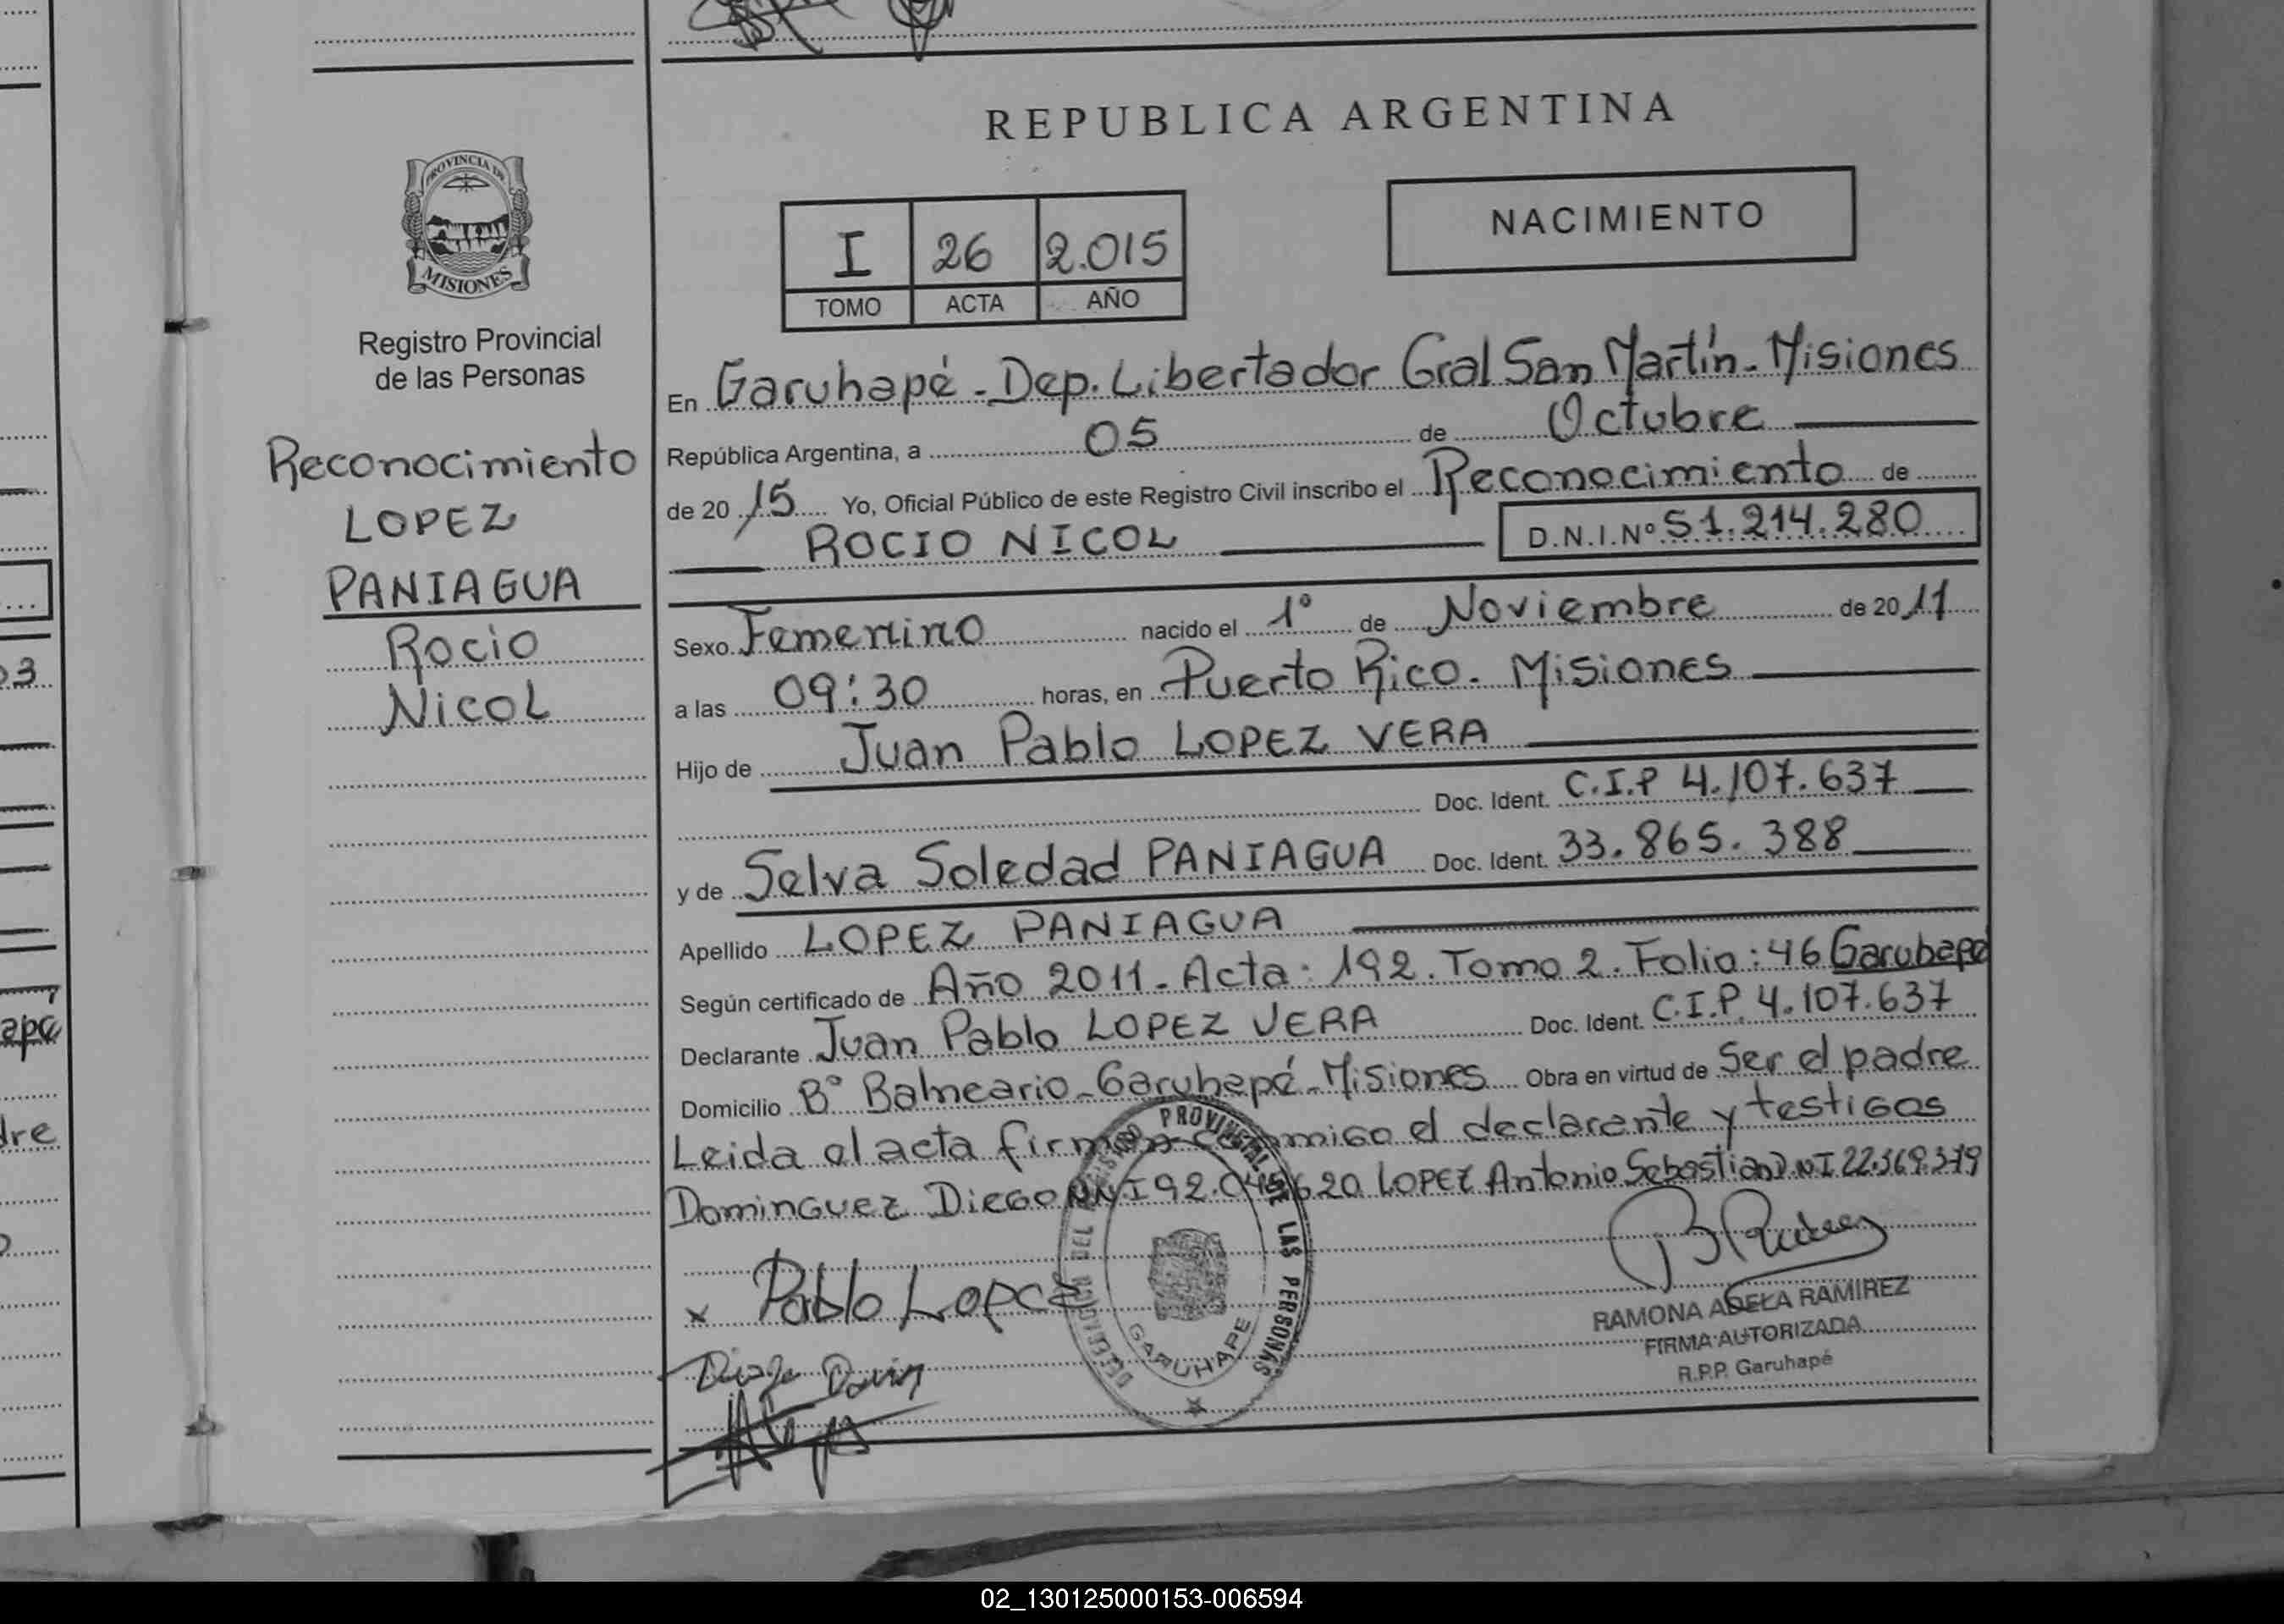 REPUBLICA ARGENTINA
PROVINCIA DE
MISIONES
Registro Provincial
de las Personas
Reconocimiento
LOPEZ
PANIAGUA
Rocio
Nicol
I 26 2.015
TOMO ACTA AÑO
NACIMIENTO
En Garuhapé - Dep. Libertador Gral San Martín - Misiones
República Argentina, a 05 de Octubre
de 20 15 Yo, Oficial Público de este Registro Civil inscribo el Reconocimiento de
ROCIO NICOL D.N.I.Nº 51.214.280
Sexo Femenino nacido el 1º de Noviembre de 20 11
a las 09:30 horas, en Puerto Rico. Misiones
Hijo de Juan Pablo LOPEZ VERA
Doc. Ident. C.I.P 4.107.637
y de Selva Soledad PANIAGUA Doc. Ident. 33.865.388
Apellido LOPEZ PANIAGUA
Según certificado de Año 2011 - Acta: 192. Tomo 2. Folio: 46 Garuhapé
Declarante Juan Pablo LOPEZ VERA Doc. Ident. C.I.P. 4.107.637
Domicilio Bº Balneario - Garuhapé - Misiones Obra en virtud de Ser el padre
Leida el acta firman conmigo el declarante y testigos
Dominguez Diego DNI 92.045620 LOPEZ Antonio Sebastian DNI 22.369.379
x Pablo Lopez
PROVINCIAL DE LAS PERSONAS
GARUHAPE
RAMONA ADELA RAMIREZ
FIRMA AUTORIZADA
R.P.P. Garuhapé
03
apé
dre
02_130125000153-006594